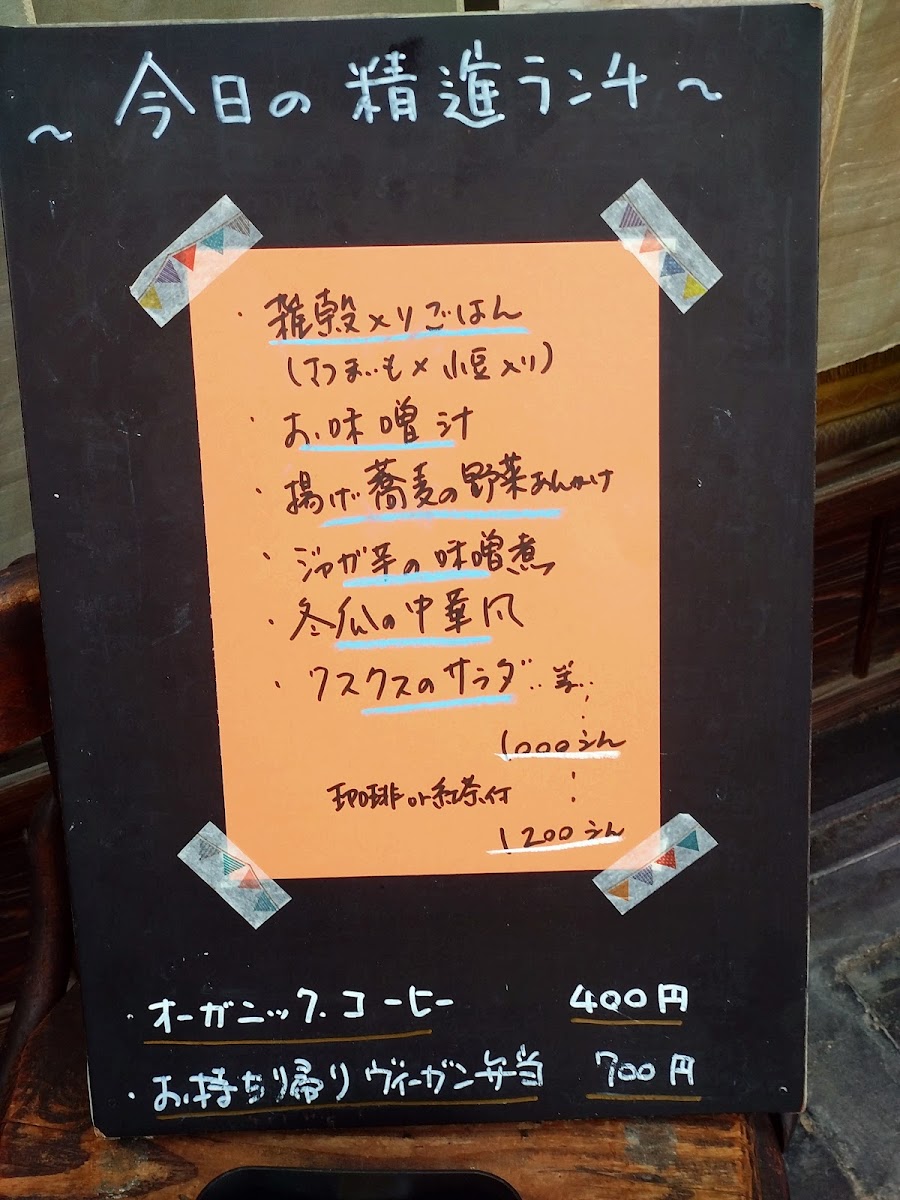 ～今日の精進ランチ～
・雑穀入りごはん
(さつまいも×小豆入り)
・お味噌汁
・揚げ蕎麦の野菜あんかけ
・ジャガ芋の味噌煮
・冬瓜の中華風
・クスクスのサラダ‥等‥
1000えん
珈琲or紅茶付
1200えん
・オーガニックコーヒー 400円
・お持ち帰りヴィーガン弁当 700円